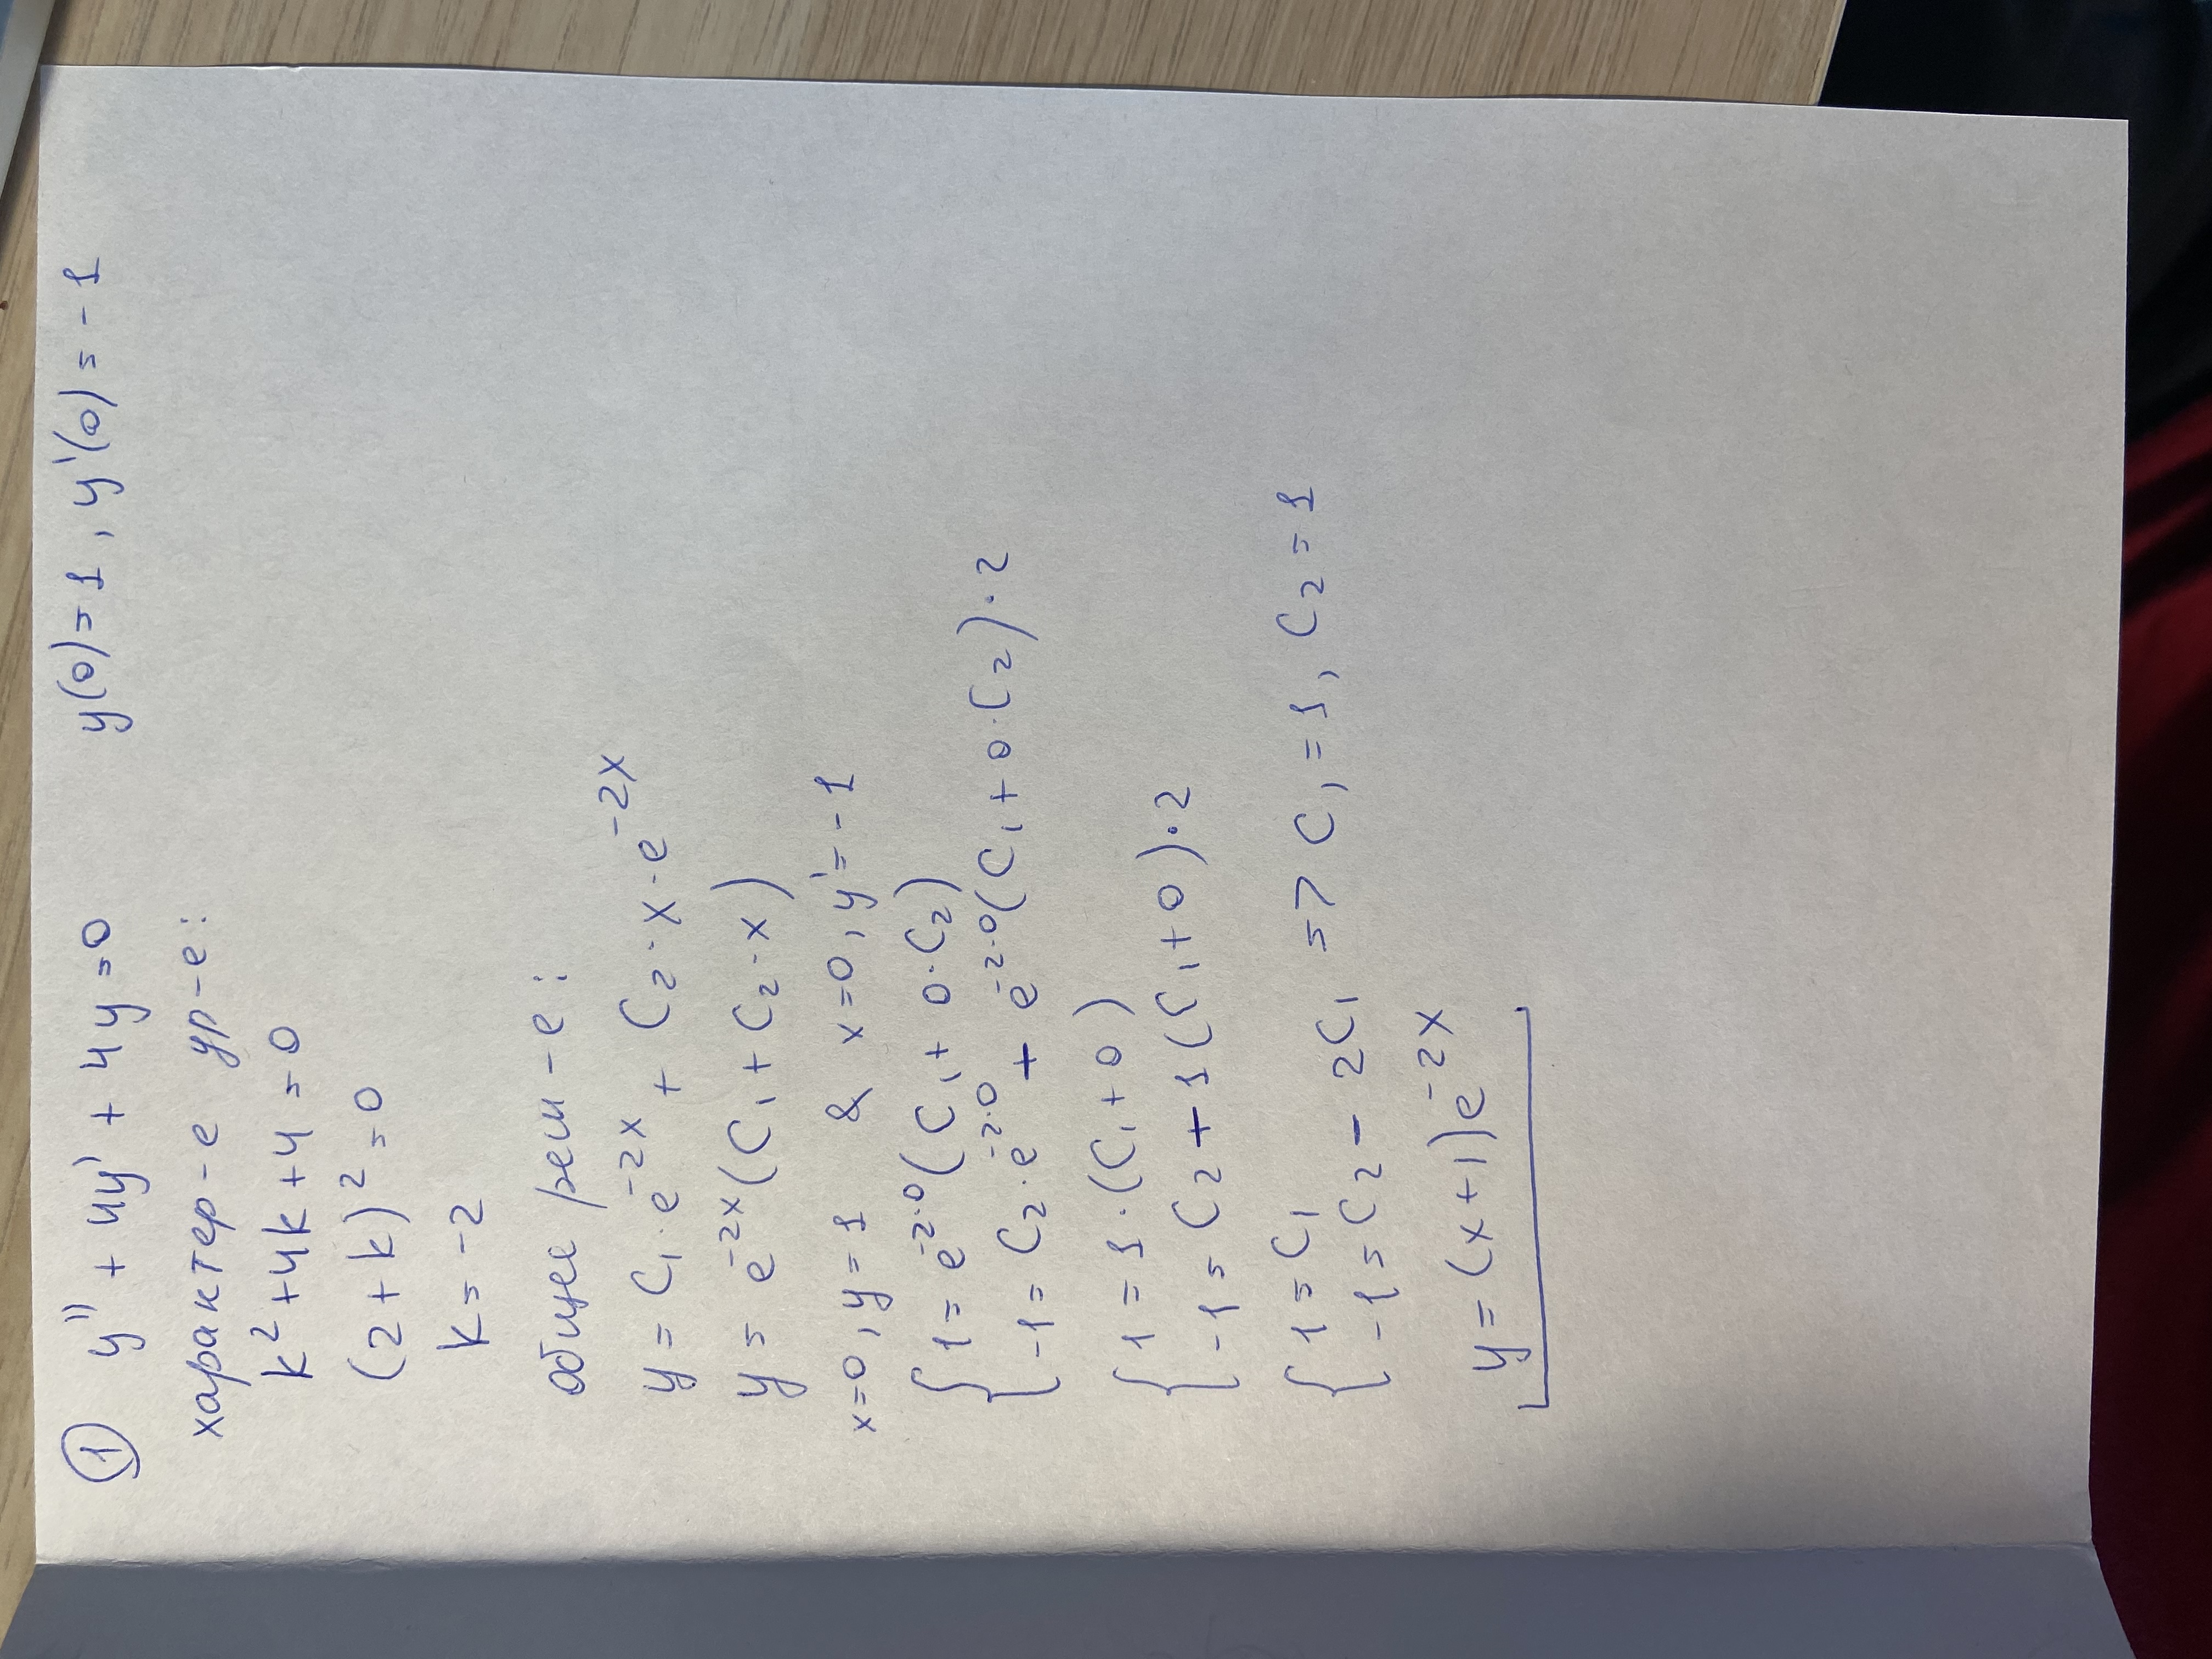 ① y'' + 4y' + 4y = 0 y(0) = 1, y'(0) = -1
характер-е ур-е:
k² + 4k + 4 = 0
(2 + k)² = 0
k = -2
общее реш-е:
y = C₁·e⁻²ˣ + C₂·x·e⁻²ˣ
y = e⁻²ˣ(C₁ + C₂·x)
x=0, y=1 & x=0, y'=-1
{ 1 = e^(-2·0)(C₁ + 0·C₂)
-1 = C₂·e^(-2·0) + e^(-2·0)(C₁ + 0·C₂)·2
{ 1 = 1·(C₁ + 0)
-1 = C₂ + 1(C₁ + 0)·2
{ 1 = C₁
-1 = C₂ - 2C₁ => C₁ = 1, C₂ = 1
y = (x+1)e⁻²ˣ